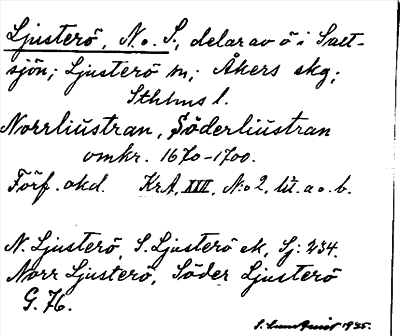 Ljusterö, N. o. S., delar av ö i Salt-
sjön; Ljusterö sn; Åkers skg;
Sthlms l.
Norrliústran, Söderliústran
omkr. 1670-1700.
Förf. okd. KrA, XIII, N:o 2, lit. a o. b.
N. Ljusterö, S. Ljusterö ek, Sj: 234.
Norr Ljusterö, Söder Ljusterö
G. 76.
S. Lundquist 1935.